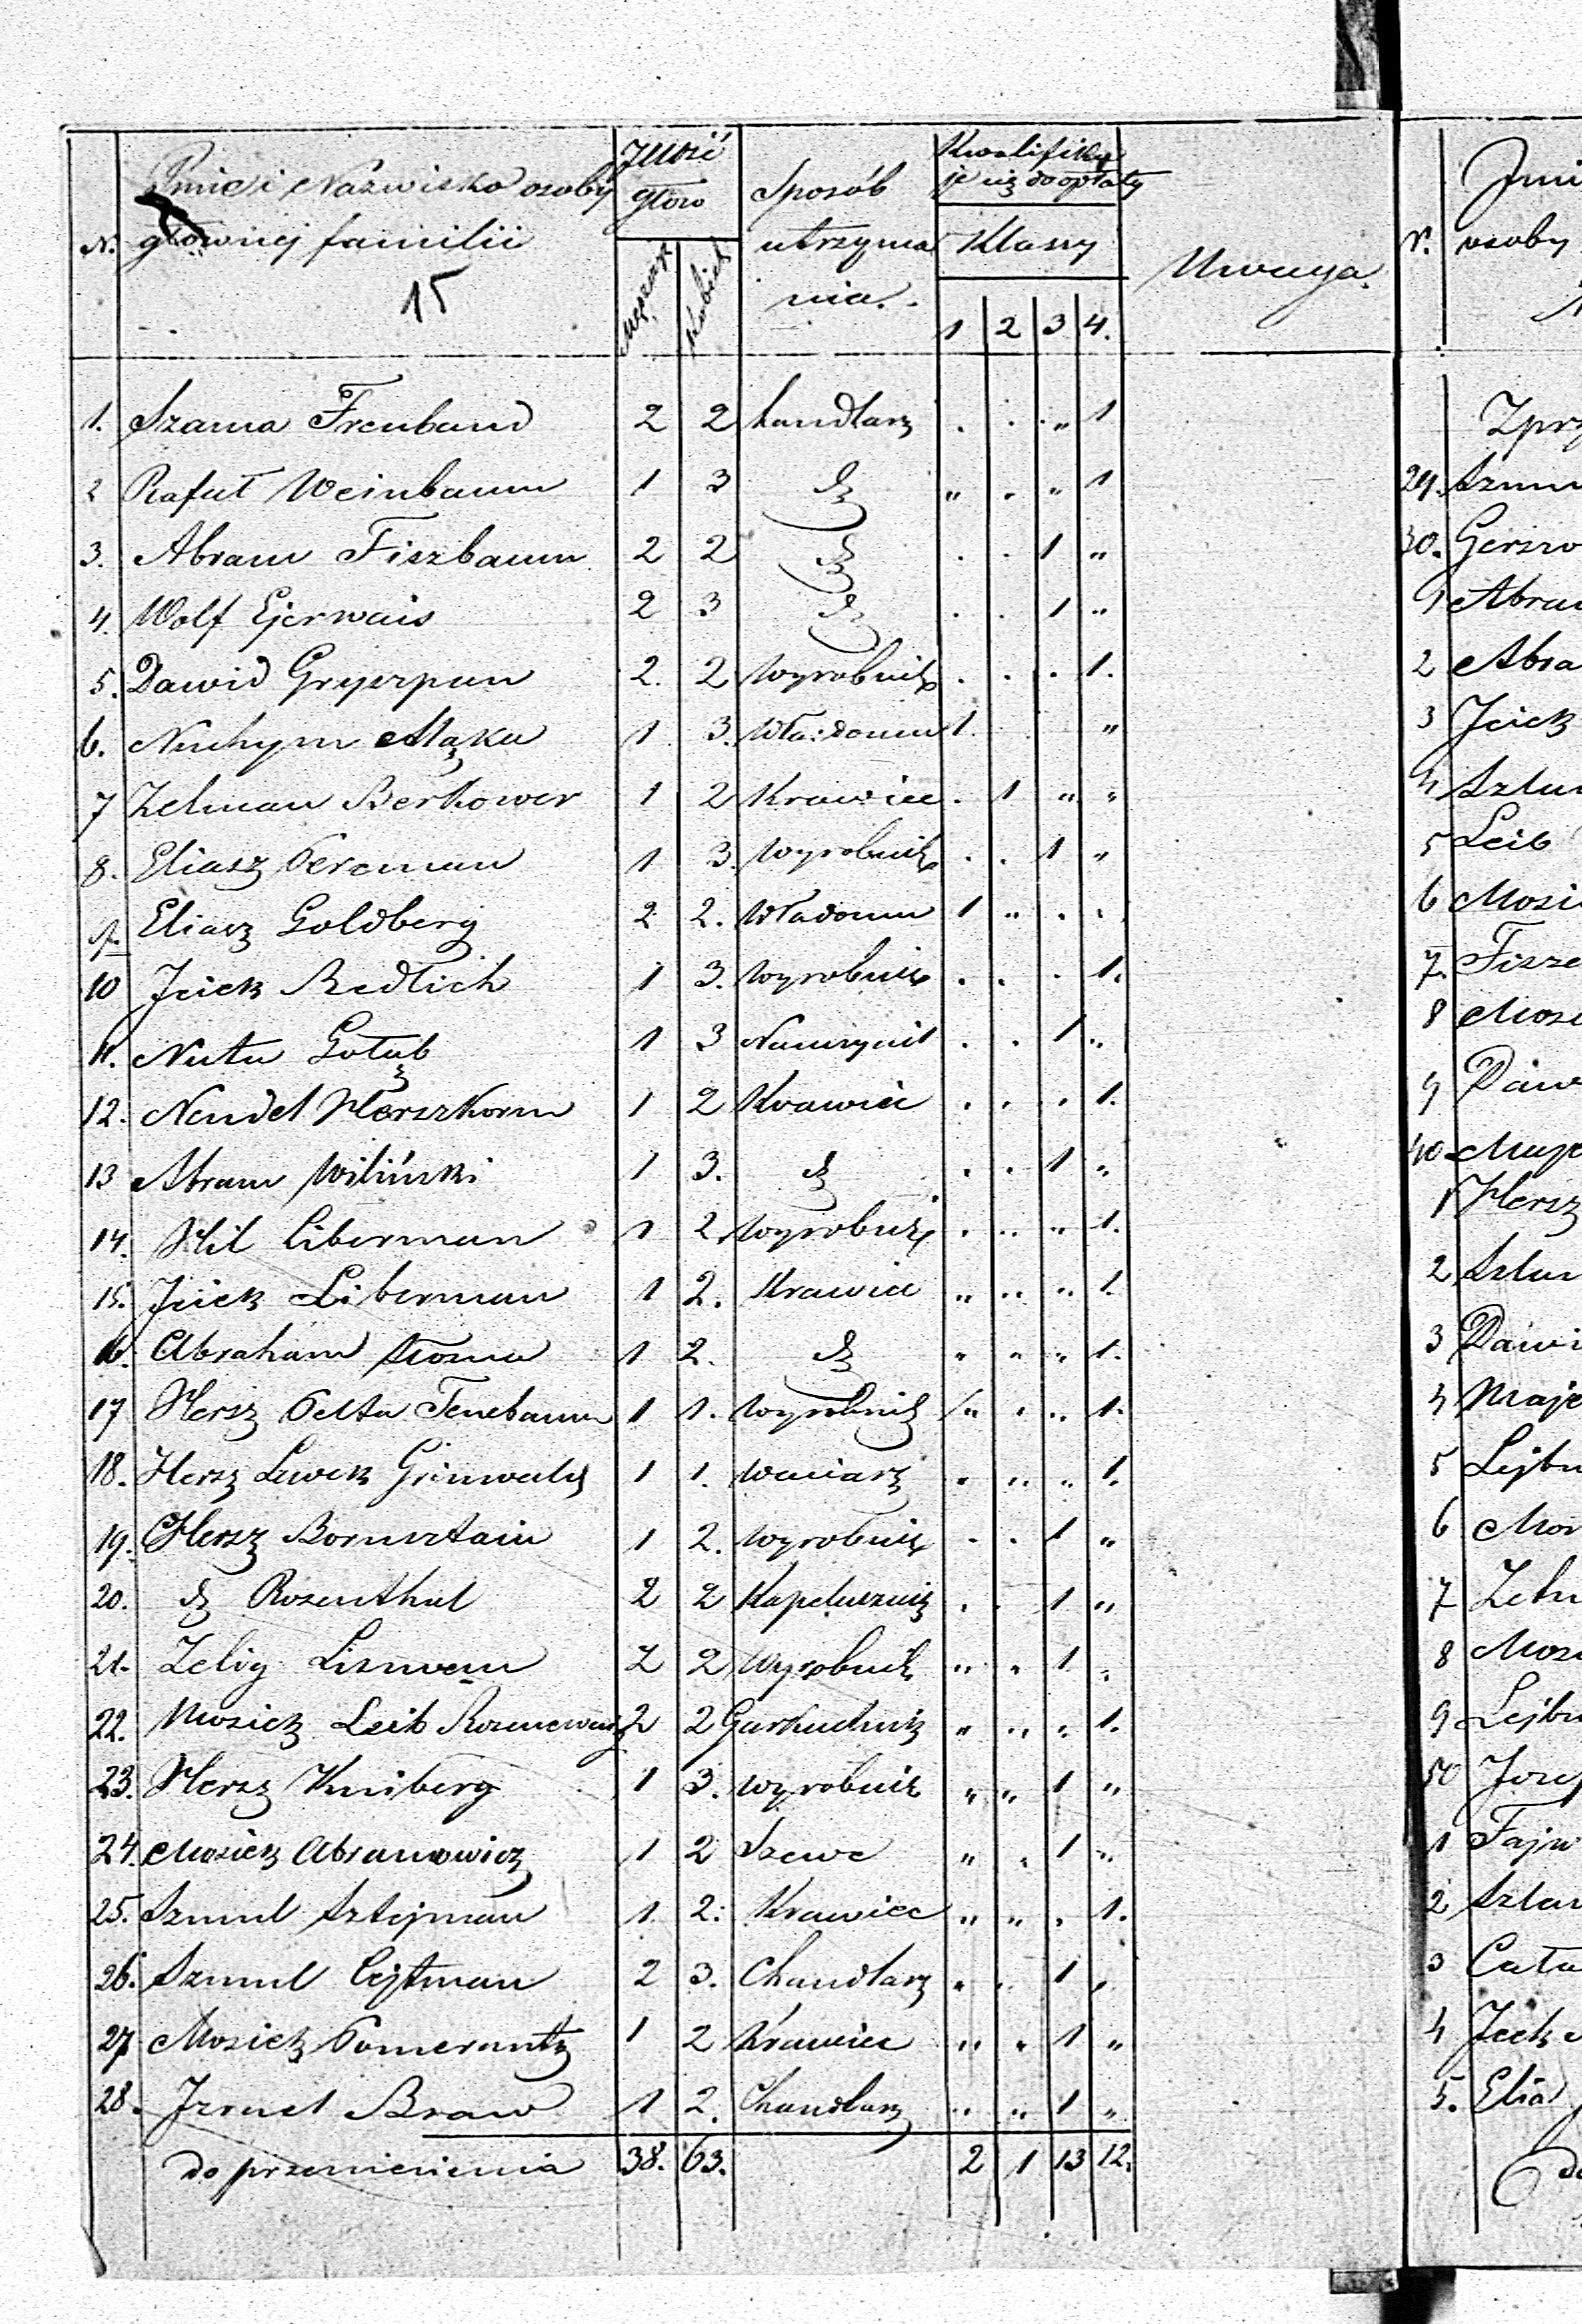 N. Imie i Nazwisko osoby głownej familii Ilość głow Męszczyz Kobiet Sposób utrzymania. Kwalifikuje się do opłaty Klassy 1 2 3 4. Uwaga.
15
1. Szama Frenband 2 2 handlarz . . „ 1
2 Rafał Weinbaum 1 3 dz „ . „ 1
3. Abram Fiszbaum 2 2 dz . . 1 „
4. Wolf Ejerwais 2 3 dz . . 1 „
5. Dawid Gryczpan 2. 2 Wyrobnik . . . 1.
6. Nuchym Mąka 1 3. Wła: domu 1. „
7 Zelman Berkower 1 2 Krawiec . 1 „ „
8. Eliasz Pereman 1 3. Wyrobnik . . 1 „
9. Eliasz Goldberg 2 2. Wła domu 1 „ . .
10 Jcick Redlich 1 3. Wyrobnik . . . 1.
11. Nuta Gołąb 1 3 . . 1 „
12. Mendel Herszkorn 1 2 Krawiec . . . 1.
13 Abram Wiliński 1 3. dz . . 1 „
14. Hil Liberman 1 2. Wyrobnik . „ „ 1.
15. Jcick Liberman 1 2. Krawiec „ „ „ 1.
16. Abraham 1 2. dz „ „ „ 1.
17 Hersz Pelta Tenebaum 1 1. Wyrobnik „ . „ 1.
18. Hersz Lewek Grinwald 1 1. . „ „ 1.
19. Hersz Bornsztain 1 2. Wyrobnik . . 1 „
20. dz Rosenthal 2 2 Kapelusznik . . 1 „
21. Zelig 2 2 Wyrobnik „ . 1. „
22. Mosiek Leib 2 2 Garkuchnik „ „ . 1.
23. Hersz Kniberg 1 3. Wyrobnik „ „ 1 „
24. Mosiek Abramowicz 1 2 Szewc „ . 1 „
25. Szmul Sztejman 1. 2. Krawiec „ „ . 1.
26. Szmul Cejtman 2 3. Chandlarz „ . 1 „
27 Mosiek Pomerantz 1 2 Krawiec „ „ 1 „
28. Jzrael Braw 1 2. Chandlarz „ „ 1 „
do przeniesienia 38. 63. 2 1 13 12.
N. Jmi
osoby
Zprz
29. Szmu
30. Gerszo
1 Abra
2 Abra
3 Jcick
4 Szlam
5 Leib
6 Mosi
7. Fisze
8 Mosi
9 Daw
40 Maje
1 Hersz
2 Szlam
3 Dawi
4 Maje
5 Lejbu
6 Mor
7 Zelm
8 Mosi
9 Lejbu
50 Jozef
1 Fajw
2 Szlam
3
4 Jcek
5. Elia